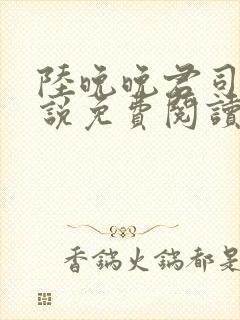 陸晚晚君司
說免費閱讀
香鍋火鍋都是